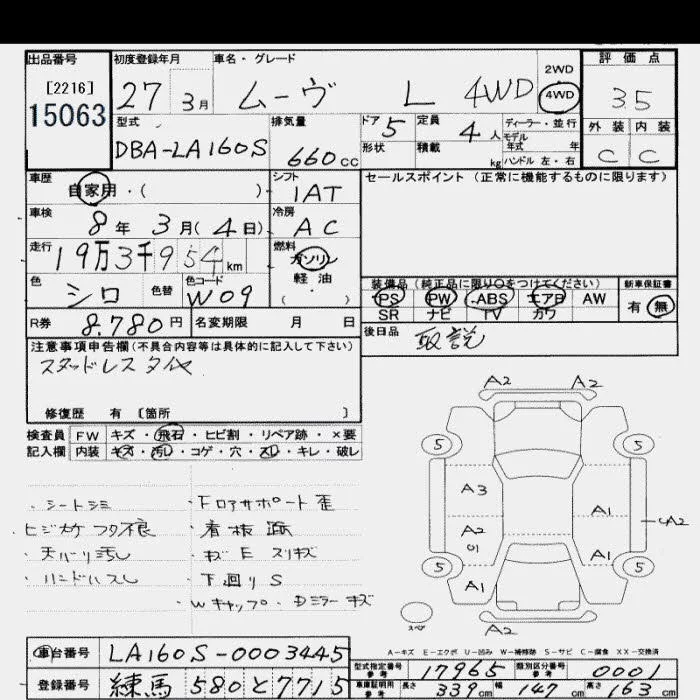 出品番号
[2216]
15063
初度登録年月
27 3月
車名・グレード
ムーヴ L 4WD
2WD
4WD
評価点
3.5
外装 内装
C C
型式
DBA-LA160S
排気量
660cc
ドア
5
形状
定員
4人
積載
kg
ディーラー・並行
モデル
年式 年
ハンドル 左・右
車歴
自家用・( )
シフト
IAT
車検
8年 3月(4日)
冷房
AC
走行
19万3千954km
燃料
ガソリン
軽油
( )
色
シロ
色替
色コード
W09
R券
8,780円
名変期限 月 日
セールスポイント(正常に機能するものに限ります)
装備品(純正品に限り○をつけてください)
PS PW ABS エアB AW
SR ナビ TV カワ
新車保証書
有・無
後日品
取説
注意事項申告欄(不具合内容等は具体的に記入して下さい)
スタッドレスタイヤ
修復歴 有 〔箇所 〕
検査員
記入欄
FW キズ・飛石・ヒビ割・リペア跡・×要
内装 キズ・汚レ・コゲ・穴・スレ・キレ・破レ
・シートシミ
ヒジカケフタ不良
・天バリ汚レ
・ハンドルスレ
・Fロアサポート歪
・看板跡
・キズ E スリキズ
・下廻りS
・Wキャップ・Dミラーキズ
A2 A2
5 5
A3
A1
A2
A2
U1
A1
5 5
A1
スペア
A2
A-キズ E-エクボ U-凹み W-補修跡 S-サビ C-腐食 XX-交換済
車台番号
LA160S-0003445
登録番号
練馬 580 と 7715
型式指定番号
参考
17965
類別区分番号
参考
0001
車庫証明用
参考
長さ 339cm 幅 147cm 高さ 163cm